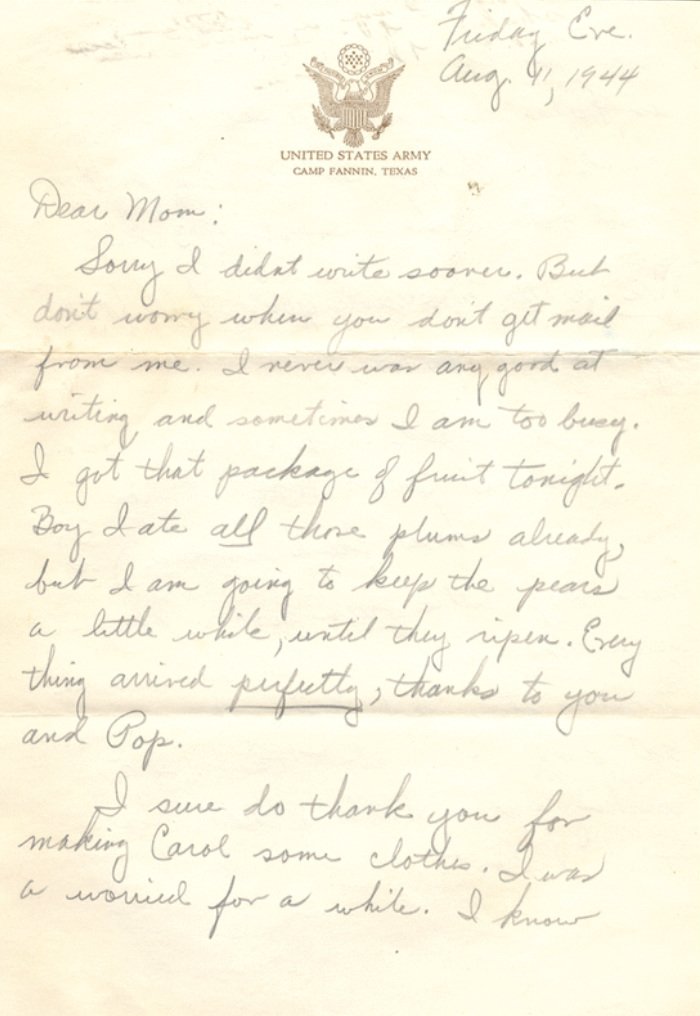 Friday Eve.
Aug. 11, 1944
UNITED STATES ARMY
CAMP FANNIN, TEXAS
Dear Mom:
Sorry I didnt write sooner. But
don't worry when you don't get mail
from me. I never was any good at
writing and sometimes I am too busy.
I got that package of fruit tonight.
Boy I ate all those plums already,
but I am going to keep the pears
a little while, until they ripen. Every
thing arrived perfectly, thanks to you
and Pop.
I sure do thank you for
making Carol some clothes. I was
a worried for a while. I know